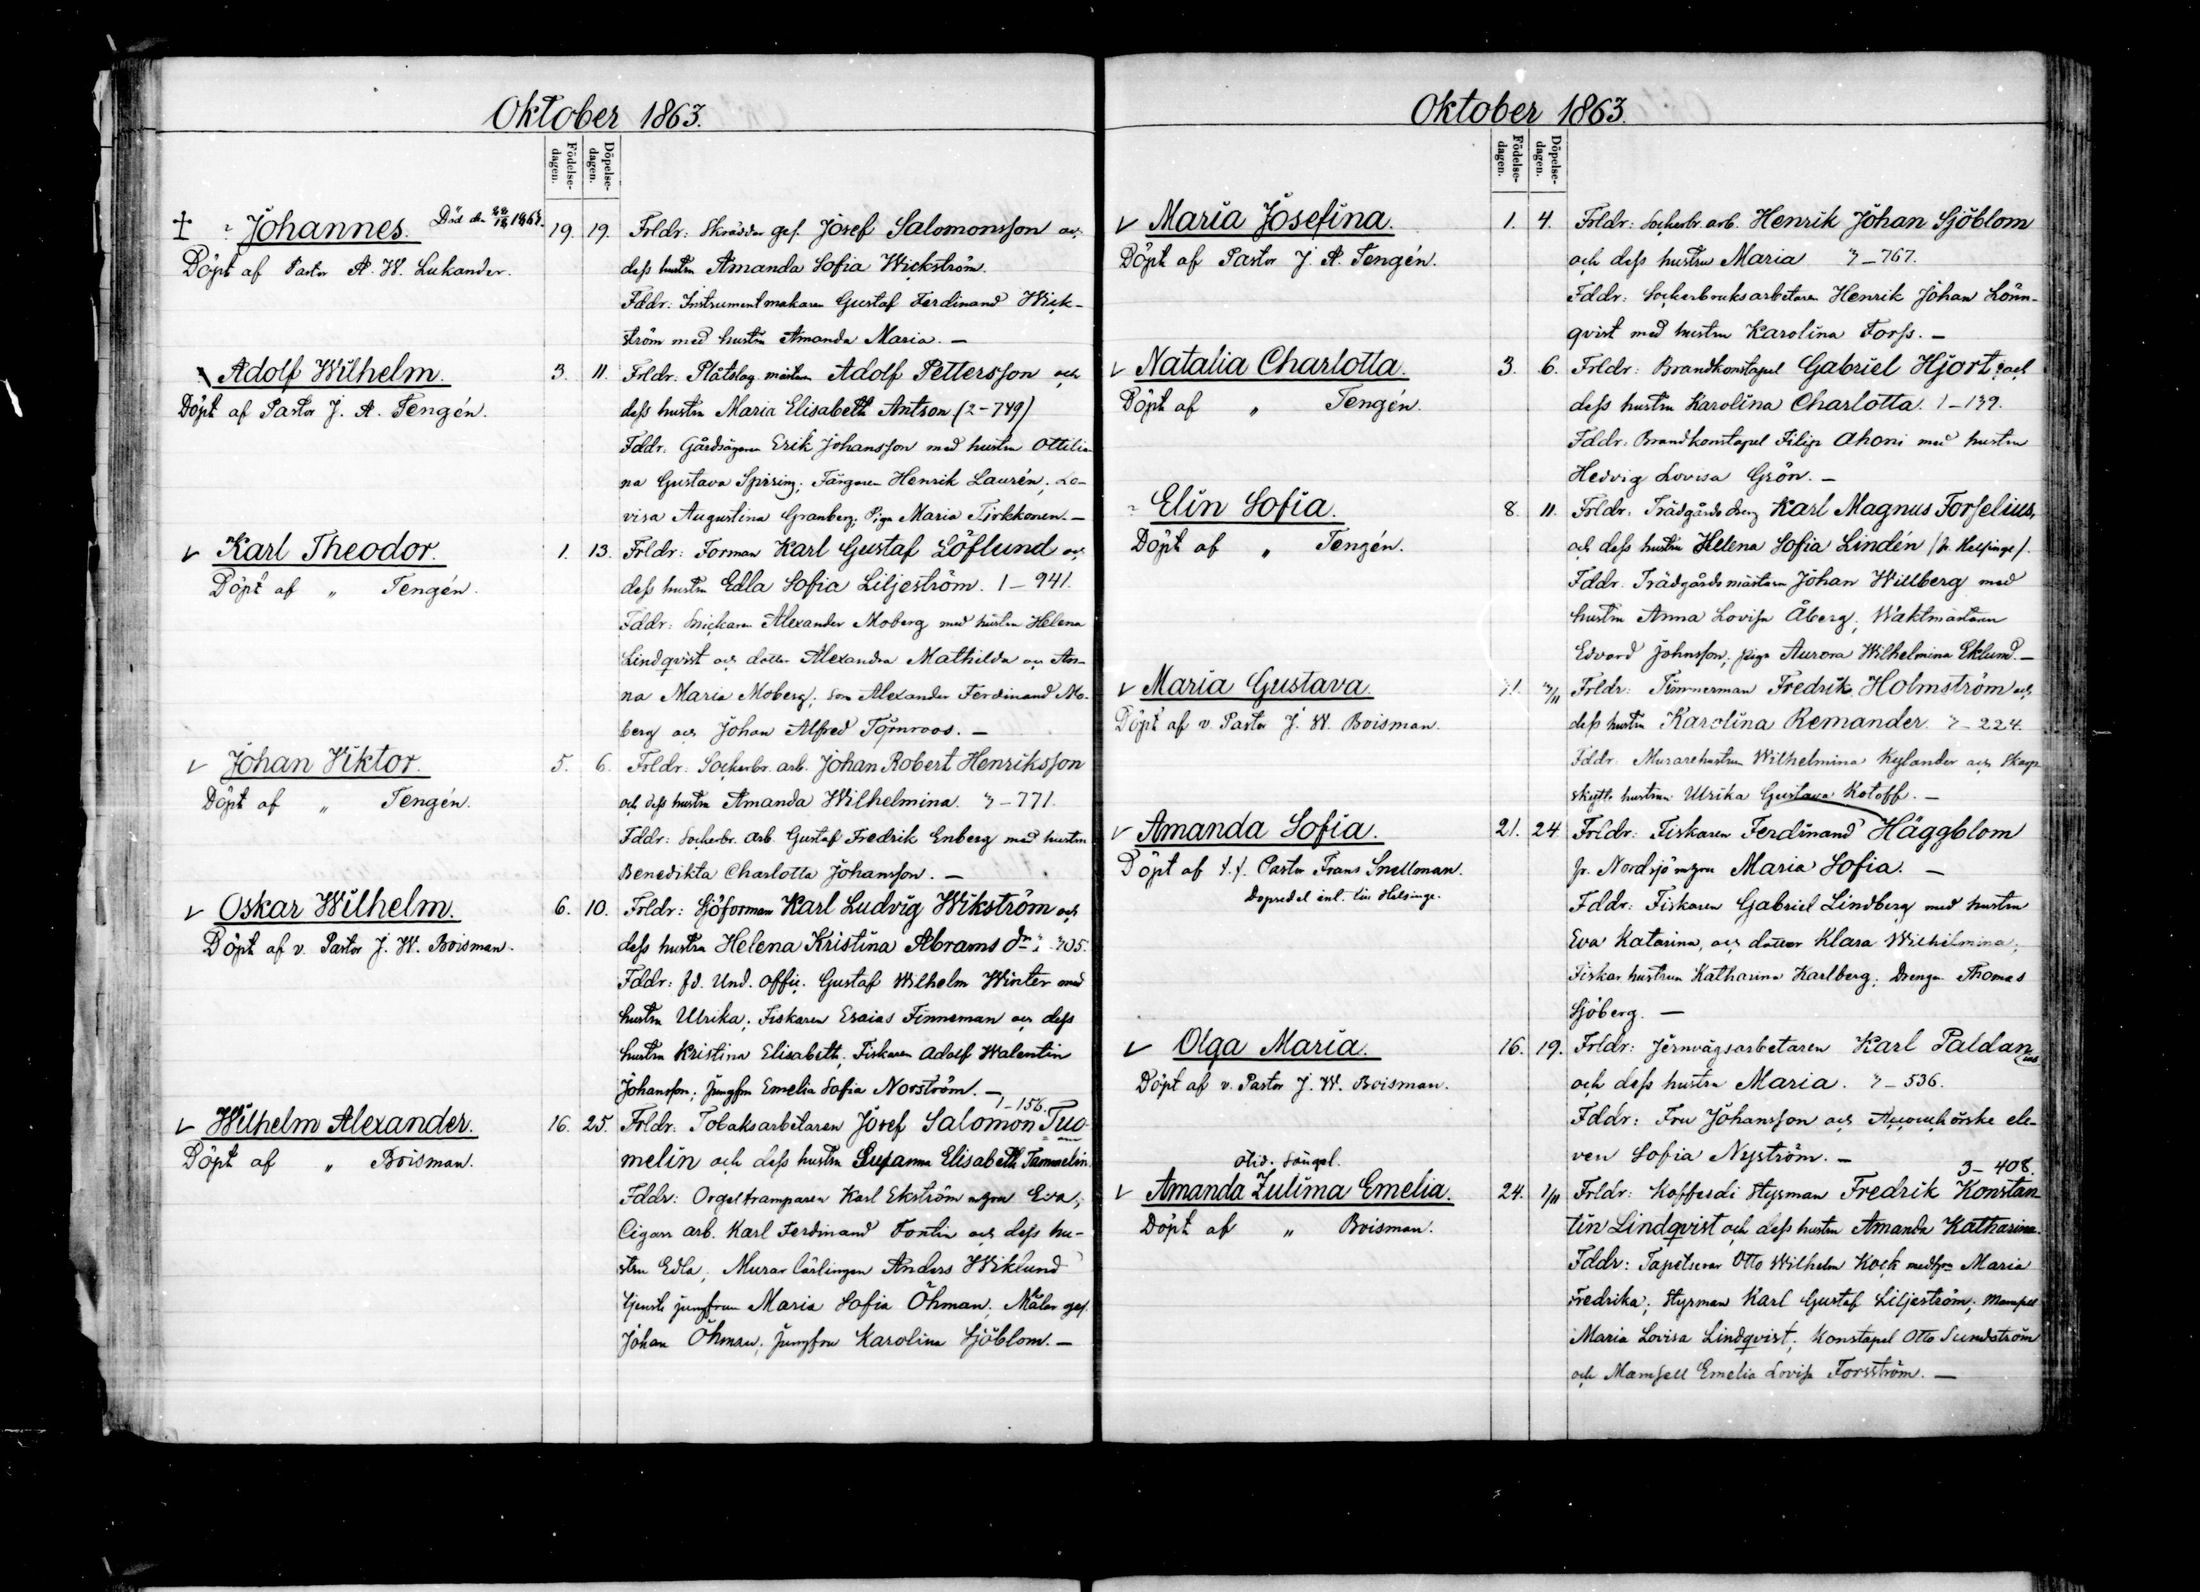 Oktober 1863.
Födelse-dagen.
Döpelse-dagen.
Johannes. Död den 22/12 1863.
Döpt af Pastor A. W. Lukander.
19. 19.
Frldr: Skräddar ges. Josef Salomonsson och
dess hustru Amanda Sofia Wickström.
Fddr: Instrumentmakaren Gustaf Ferdinand Wick-
ström med hustru Amanda Maria. —
Adolf Wilhelm.
Döpt af Pastor J. A. Tengén.
3. 11.
Frldr: Plåtslag. mästaren Adolf Pettersson och
dess hustru Maria Elisabeth Antson (2-749)
Fddr: Gårdsägaren Erik Johansson med hustru Ottilia-
na Gustava Spiring; Färgaren Henrik Laurén; Lo-
visa Augustina Granberg; Piga Maria Tirkkonen. —
Karl Theodor.
Döpt af „ Tengén.
1. 13.
Frldr: Forman Karl Gustaf Löflund och
dess hustru Edla Sofia Liljeström. 1-941.
Fddr: Snickaren Alexander Moberg med hustru Helena
Lindqvist och dotter Alexandra Mathilda och An-
na Maria Moberg; son Alexander Ferdinand Mo-
berg och Johan Alfred Törnroos. —
Johan Viktor.
Döpt af „ Tengén.
5. 6.
Frldr: Sockerbr. arb. Johan Robert Henriksson
och dess hustru Amanda Wilhelmina. 3-771.
Fddr: Sockerbr. arb. Gustaf Fredrik Enberg med hustru
Benedikta Charlotta Johansson. —
Oskar Wilhelm.
Döpt af v. Pastor J. W. Boisman.
6. 10.
Frldr: Sjöforman Karl Ludvig Wikström och
dess hustru Helena Kristina Abrams dr
Fddr: fd. Und. offic. Gustaf Wilhelm Winter med
hustru Ulrika; Fiskaren Esaias Finneman och dess
hustru Kristina Elisabeth; Fiskaren Adolf Walentin
Johansson; Jungfru Emelia Sofia Norström. —
Wilhelm Alexander.
Döpt af „ Boisman.
16. 25.
1-156.
Frldr: Tobaksarbetaren Josef Salomon Tuo-
melin och dess hustru Susanna Elisabeth Tammelin.
Fddr: Orgeltramparen Karl Ekström m hru Eva;
Cigarr arb. Karl Ferdinand Fontin och dess hu-
stru Edla; Murar lärlingen Anders Wiklund
tjenste jungfrun Maria Sofia Öhman; Målar ges.
Johan Öhman; Jungfru Karolina Sjöblom. —
Oktober 1863.
Födelse-dagen.
Döpelse-dagen.
Maria Josefina.
Döpt af Pastor J. A. Tengén.
1. 4.
Frldr: Sockerbr. arb. Henrik Johan Sjöblom
och dess hustru Maria 3-767.
Fddr: Sockerbruksarbetaren Henrik Johan Lönn-
qvist med hustru Karolina Forss. —
Natalia Charlotta.
Döpt af „ Tengén.
3. 6.
Frldr: Brandkonstapel Gabriel Hjort och
dess hustru Karolina Charlotta. 1-139.
Fddr: Brandkonstapel Filip Ahoni med hustru
Hedvig Lovisa Grön. —
Elin Sofia.
Döpt af „ Tengén.
8. 11.
Frldr: Trädgårds dreng Karl Magnus Forselius,
och dess hustru Helena Sofia Lindén (fr. Helsinge).
Fddr: Trädgårdsmästaren Johan Willberg med
hustru Anna Lovisa Åberg; Waktmästaren
Edvard Johnsson; piga Aurora Wilhelmina Eklund. —
Maria Gustava.
Döpt af v. Pastor J. W. Boisman.
Frldr: Timmerman Fredrik Holmström och
dess hustru Karolina Remander. 3-224.
Fddr: Murarehustrun Wilhelmina Kylander och Skarp-
skytte hustrun Ulrika Gustava Kotoff. —
Amanda Sofia.
Döpt af t. f. Pastor Frans Snellman.
Dopsedel inl. till Helsinge.
21. 24.
Frldr: Fiskaren Ferdinand Häggblom
fr. Nordsjö m hru Maria Sofia. —
Fddr: Fiskaren Gabriel Lindberg med hustru
Eva Katarina, och dotter Klara Wilhelmina;
Fiskar hustrun Katharina Karlberg; Drengen Thomas
Sjöberg. —
Olga Maria.
Döpt af v. Pastor J. W. Boisman.
16. 19.
Frldr: Jernvägsarbetaren Karl Paldanius
och dess hustru Maria. 3-536.
Fddr: Fru Johansson och Accouchörske ele-
ven Sofia Nyström. —
Amanda Zulima Emelia.
Döpt af „ Boisman.
24. 1/11
3-408.
Frldr: Kofferdi Styrman Fredrik Konstan-
tin Lindqvist och dess hustru Amanda Katharina.
Fddr: Tapetserar Otto Wilhelm Kock med hru Maria
Fredrika; Styrman Karl Gustaf Liljeström; Mamsell
Maria Lovisa Lindqvist; Konstapel Otto Sundström
och Mamsell Emelia Lovisa Forsström. —